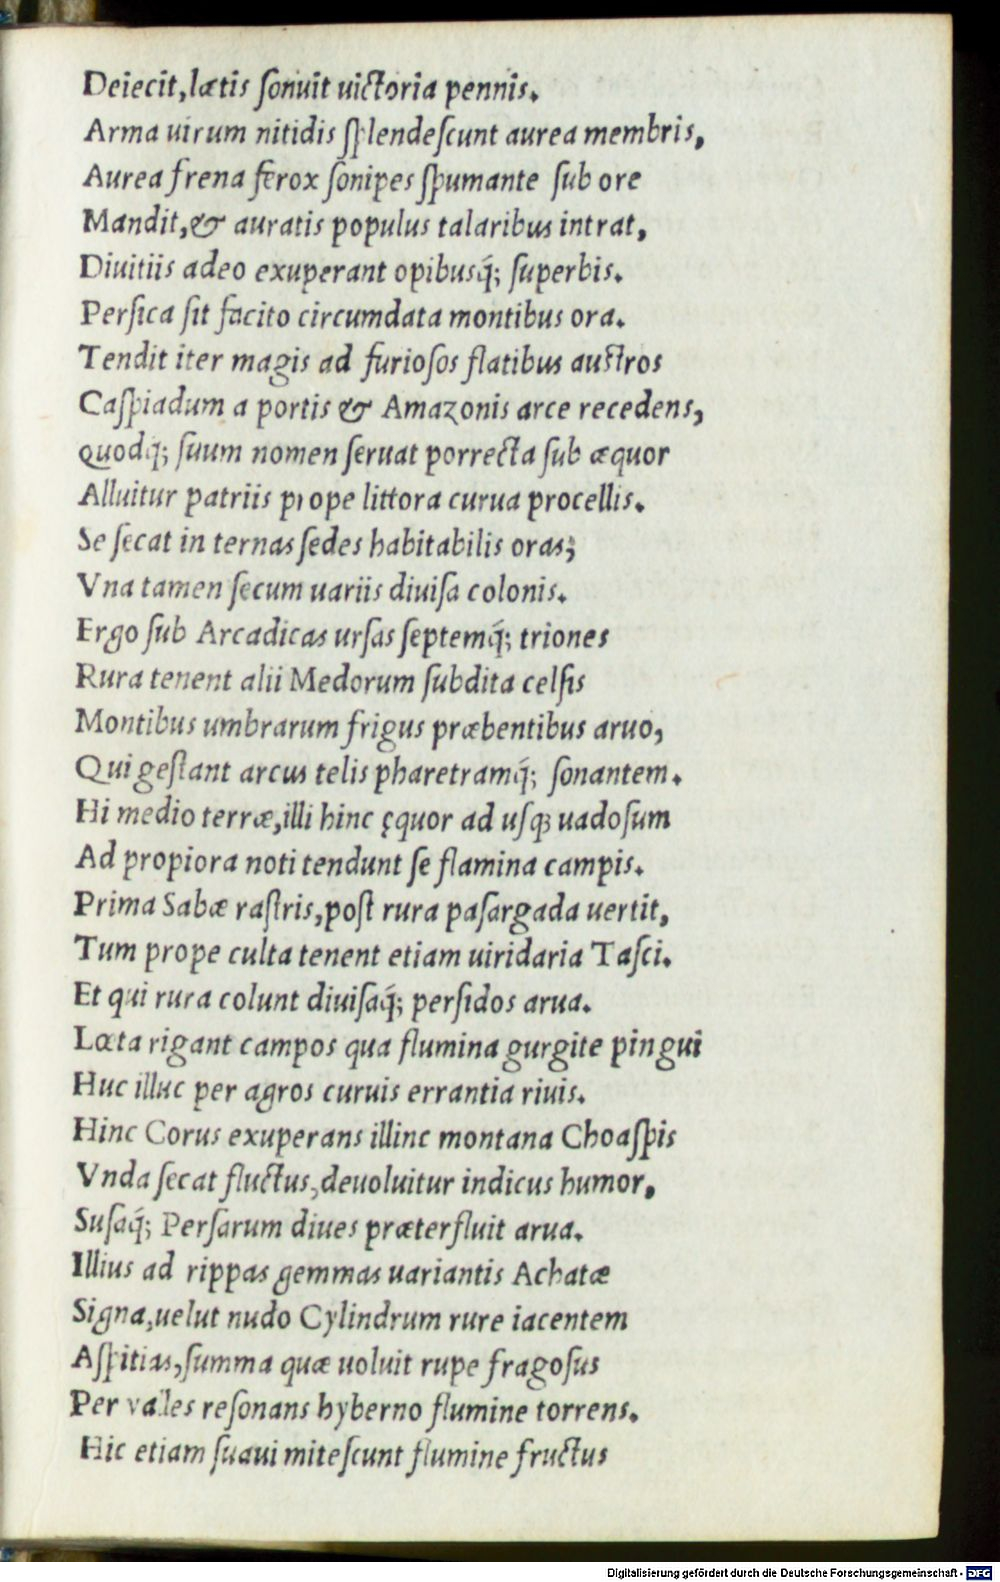 Deiecit,lætis ſonuit uictoria pennis.
Arma uirum nitidis ſplendeſcunt aurea membris,
Aurea frena ferox ſonipes ſpumante ſub ore
Mandit,& auratis populus talaribus intrat,
Diuitiis adeo exuperant opibusq́; ſuperbis.
Perſica ſit facito circumdata montibus ora.
Tendit iter magis ad furioſos flatibus auſtros
Caſpiadum a portis & Amazonis arce recedens,
quodq́; ſuum nomen ſeruat porrecta ſub æquor
Alluitur patriis prope littora curua procellis.
Se ſecat in ternas ſedes habitabilis oras;
Vna tamen ſecum uariis diuiſa colonis.
Ergo ſub Arcadicas urſas ſeptemq́; triones
Rura tenent alii Medorum ſubdita celſis
Montibus umbrarum frigus præbentibus aruo,
Qui geſtant arcus telis pharetramq́; ſonantem.
Hi medio terræ,illi hinc ęquor ad uſqꝫ uadoſum
Ad propiora noti tendunt ſe flamina campis.
Prima Sabæ raſtris,poſt rura paſargada uertit,
Tum prope culta tenent etiam uiridaria Taſci.
Et qui rura colunt diuiſaq́; perſidos arua.
Læta rigant campos qua flumina gurgite pingui
Huc illuc per agros curuis errantia riuis.
Hinc Corus exuperans illinc montana Choaſpis
Vnda ſecat fluctus,deuoluitur indicus humor,
Suſaq́; Perſarum diues præterfluit arua.
Illius ad rippas gemmas uariantis Achatæ
Signa,uelut nudo Cylindrum rure iacentem
Aſpitias,ſumma quæ uoluit rupe fragoſus
Per valles reſonans hyberno flumine torrens.
Hic etiam ſuaui miteſcunt flumine fructus
Digitalisierung gefördert durch die Deutsche Forschungsgemeinschaft - DFG